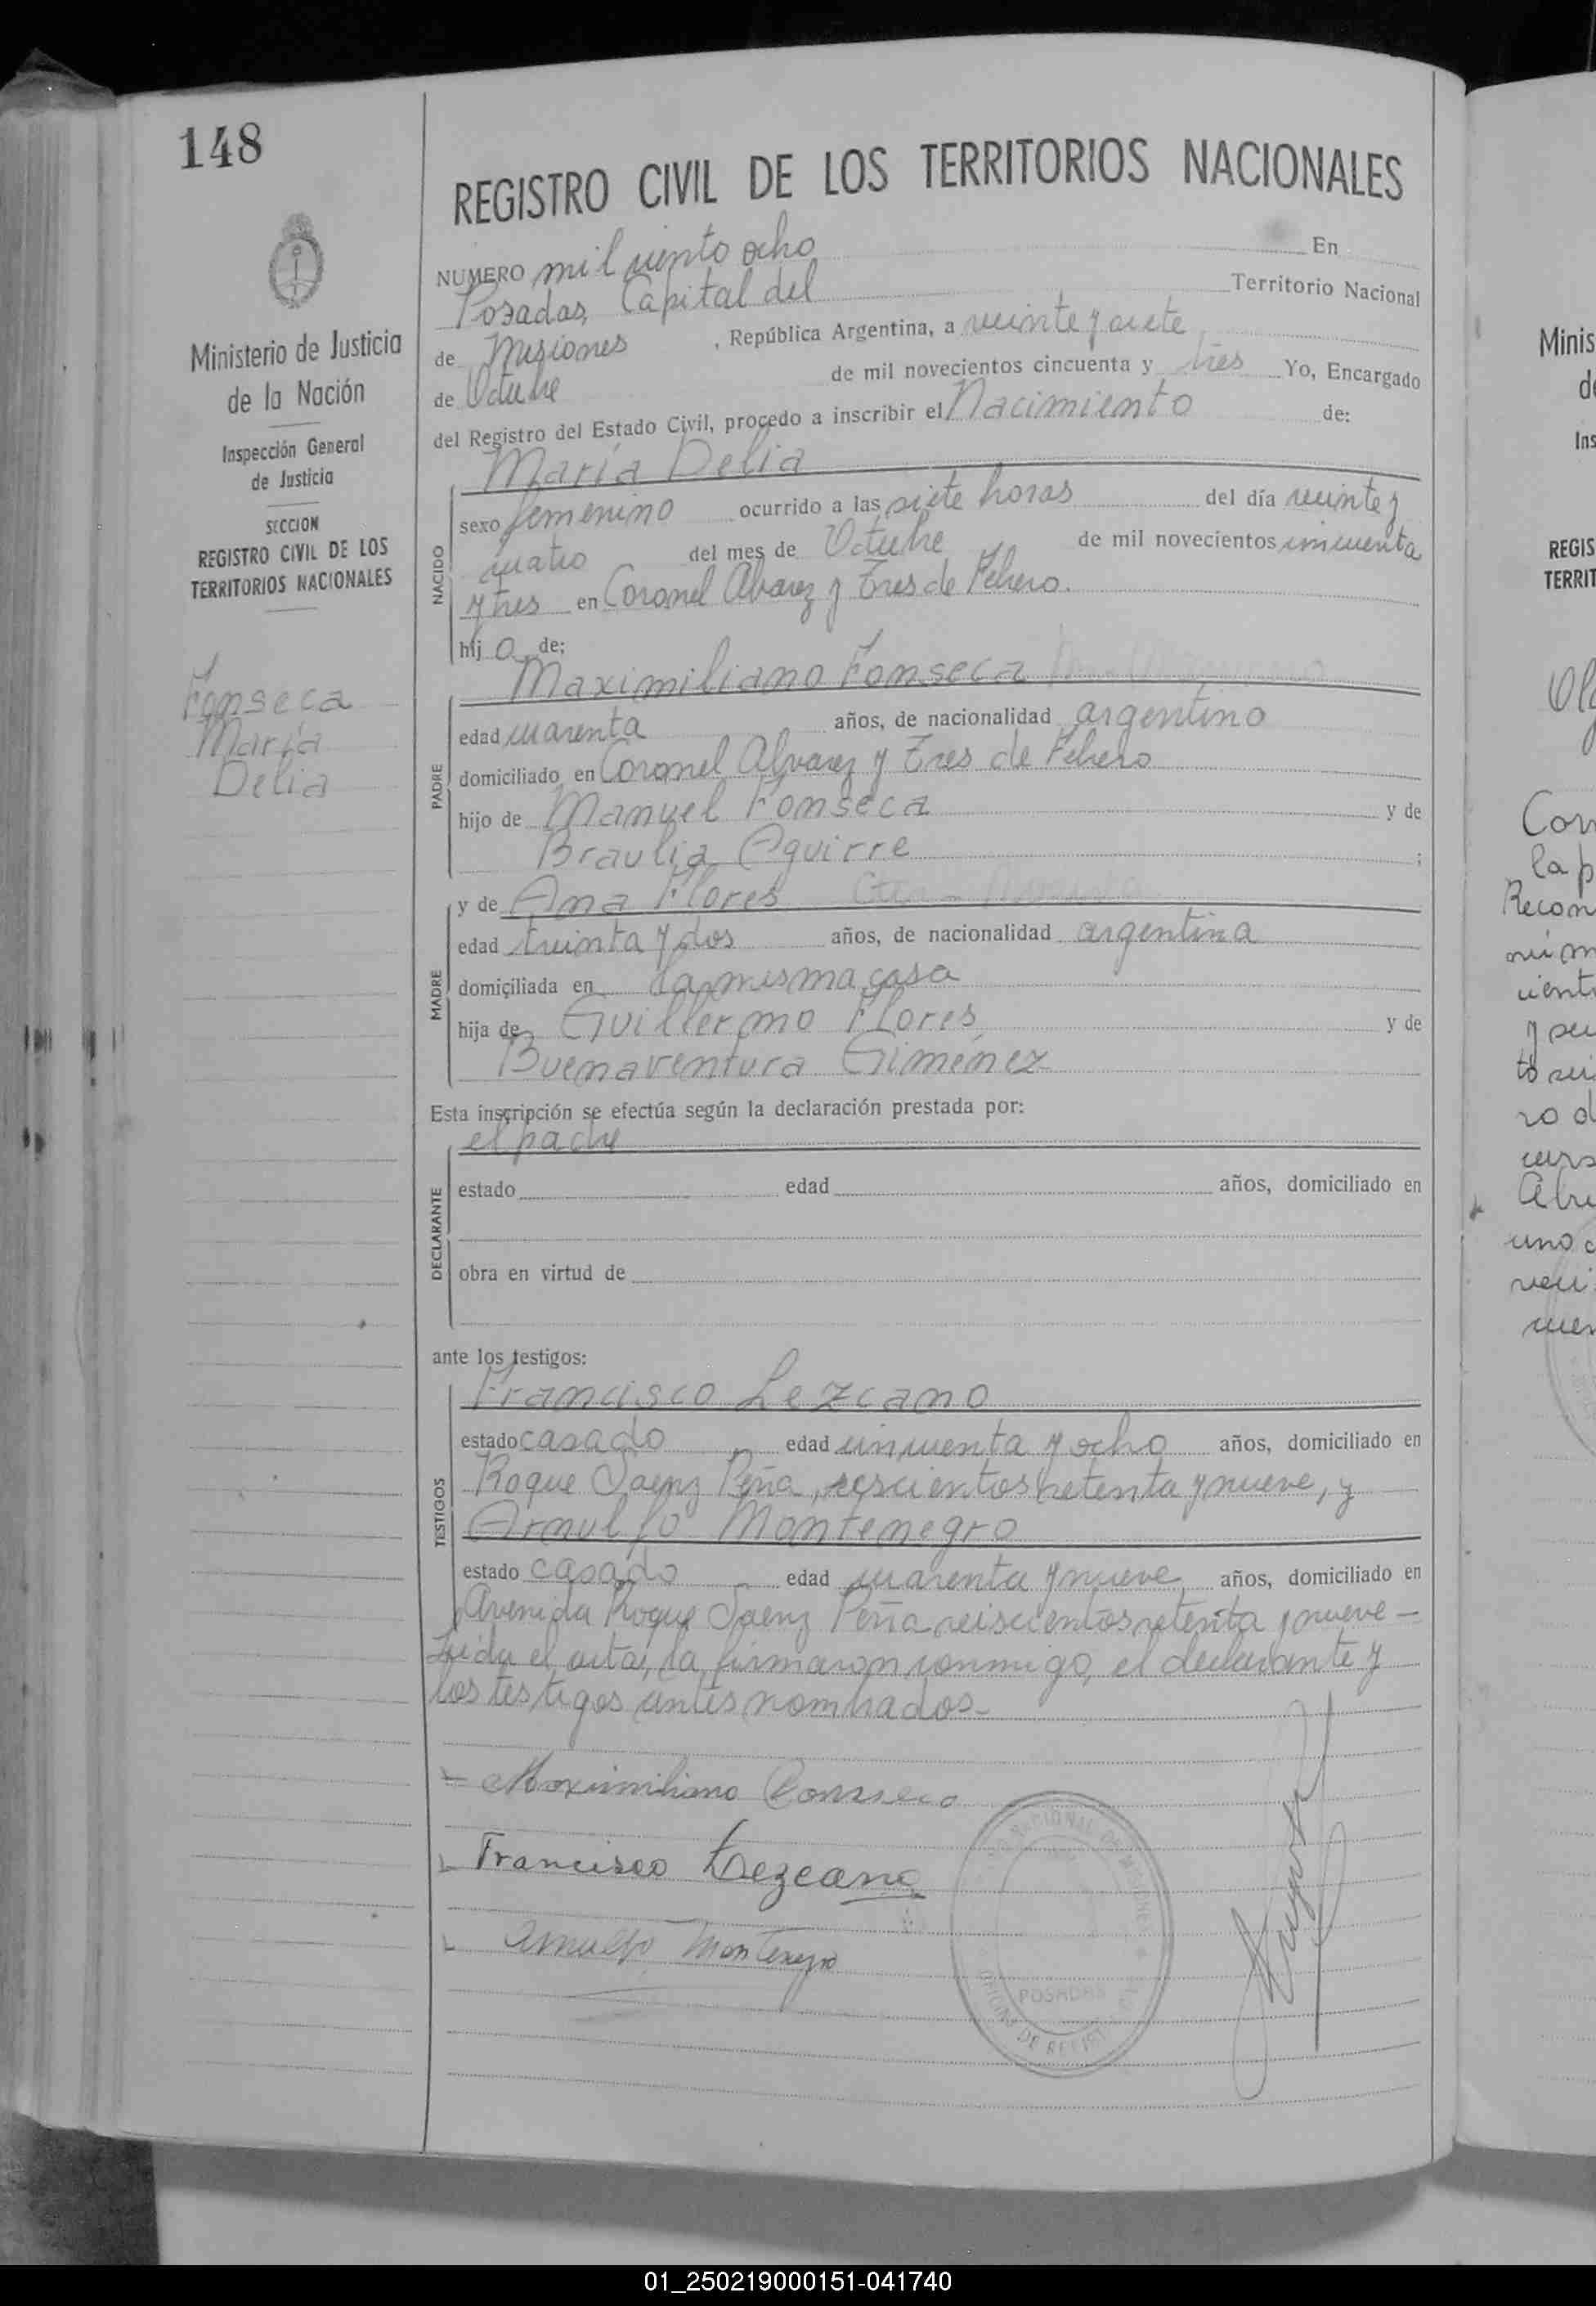 148
REGISTRO CIVIL DE LOS TERRITORIOS NACIONALES
NUMERO mil ciento ocho En
Posadas, Capital del Territorio Nacional
de Misiones , República Argentina, a veinte y siete
de Octubre de mil novecientos cincuenta y tres Yo, Encargado
del Registro del Estado Civil, procedo a inscribir el Nacimiento de:
María Delia
NACIDO
sexo femenino ocurrido a las siete horas del día veinte y
cuatro del mes de Octubre de mil novecientos cincuenta
y tres en Coronel Alvarez y Tres de Febrero.
hij a de:
Maximiliano Fonseca
PADRE
edad cuarenta años, de nacionalidad argentino
domiciliado en Coronel Alvarez y Tres de Febrero
hijo de Manuel Fonseca y de
Braulia Aguirre ;
y de Ana Flores
MADRE
edad treinta y dos años, de nacionalidad argentina
domiciliada en la misma casa
hija de Guillermo Flores y de
Buenaventura Giménez
Esta inscripción se efectúa según la declaración prestada por:
el padre
DECLARANTE
estado edad años, domiciliado en
obra en virtud de
ante los testigos:
Francisco Lezcano
TESTIGOS
estado casado edad cincuenta y ocho años, domiciliado en
Roque Saenz Peña, seiscientos setenta y nueve, y
Arnulfo Montenegro
estado casado edad cuarenta y nueve años, domiciliado en
Avenida Roque Saenz Peña seiscientos setenta y nueve –
Leida el acta, la firmaron conmigo, el declarante y
los testigos antes nombrados –
Maximiliano Fonseca
Francisco Lezcano
Arnulfo Montenegro
POSADAS
Ministerio de Justicia
de la Nación
Inspección General
de Justicia
SECCION
REGISTRO CIVIL DE LOS
TERRITORIOS NACIONALES
Fonseca
María
Delia
Minis
de
Ins
REGIS
TERRIT
Con
la p
Recon
uno
01_250219000151-041740